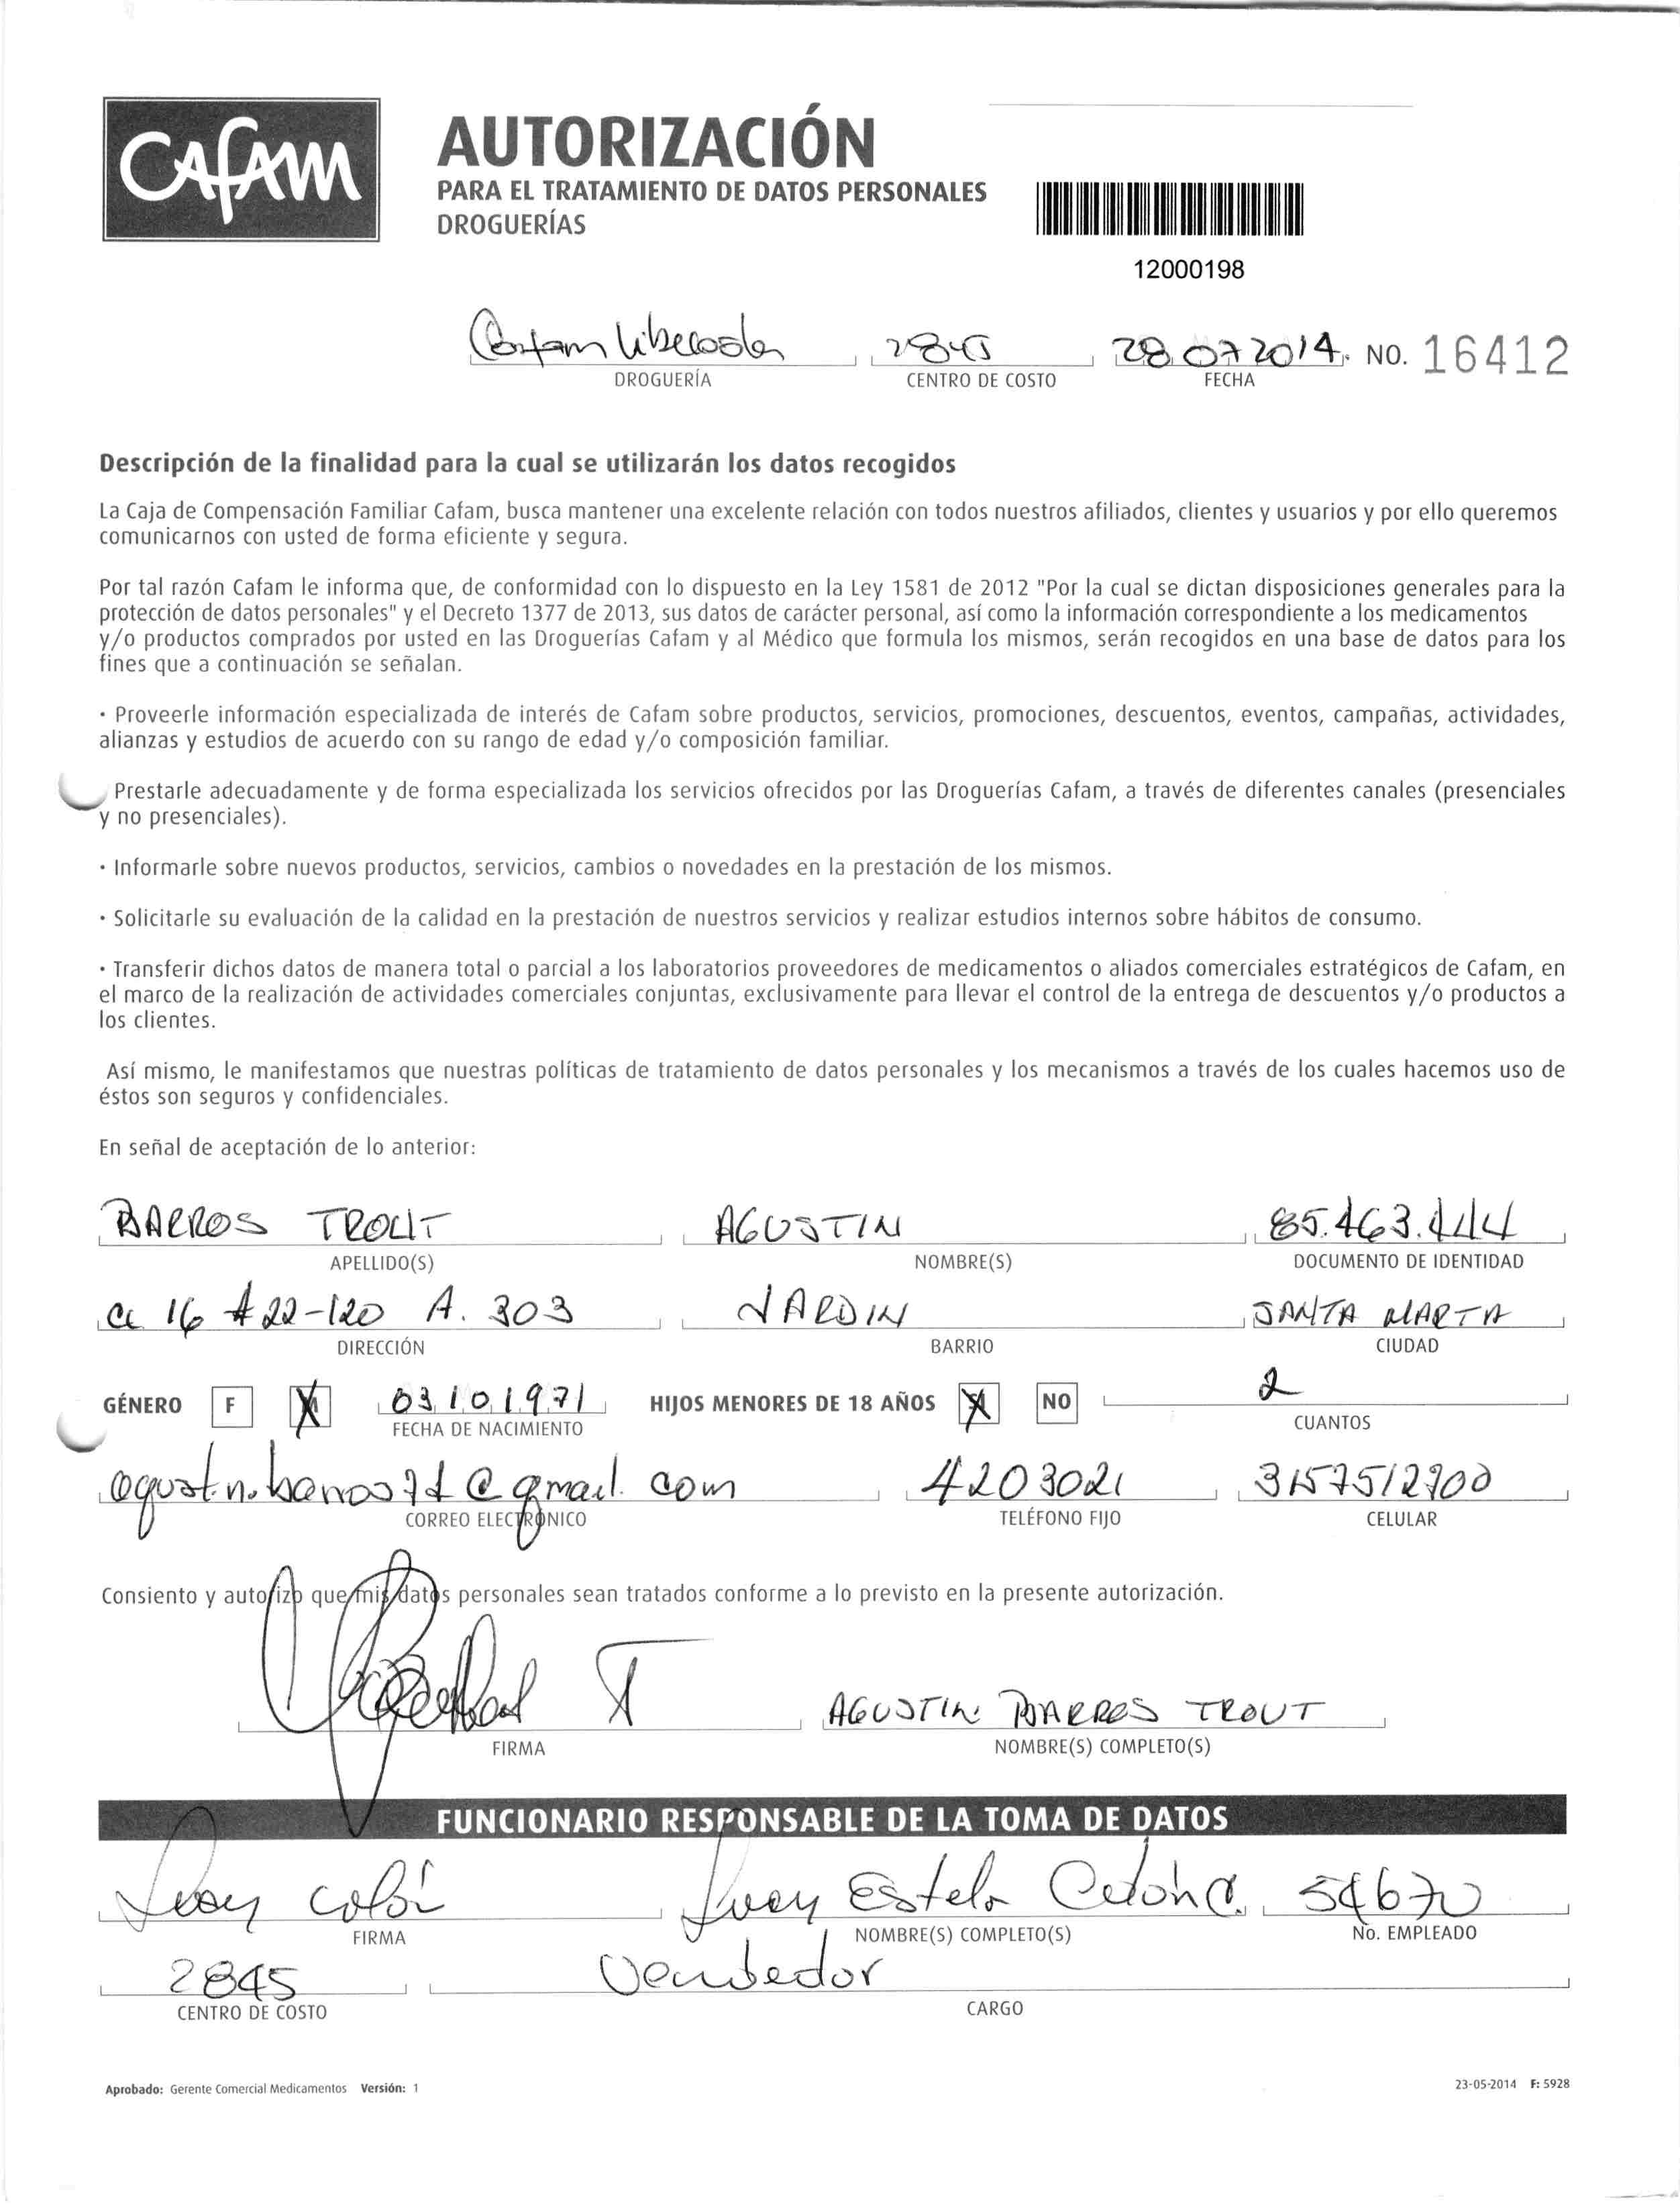 CAFAM
AUTORIZACIÓN
PARA EL TRATAMIENTO DE DATOS PERSONALES
DROGUERÍAS
12000198
Cafam 28 07 2014. NO. 16412
DROGUERÍA CENTRO DE COSTO FECHA
Descripción de la finalidad para la cual se utilizarán los datos recogidos
La Caja de Compensación Familiar Cafam, busca mantener una excelente relación con todos nuestros afiliados, clientes y usuarios y por ello queremos
comunicarnos con usted de forma eficiente y segura.
Por tal razón Cafam le informa que, de conformidad con lo dispuesto en la Ley 1581 de 2012 "Por la cual se dictan disposiciones generales para la
protección de datos personales" y el Decreto 1377 de 2013, sus datos de carácter personal, así como la información correspondiente a los medicamentos
y/o productos comprados por usted en las Droguerías Cafam y al Médico que formula los mismos, serán recogidos en una base de datos para los
fines que a continuación se señalan.
· Proveerle información especializada de interés de Cafam sobre productos, servicios, promociones, descuentos, eventos, campañas, actividades,
alianzas y estudios de acuerdo con su rango de edad y/o composición familiar.
Prestarle adecuadamente y de forma especializada los servicios ofrecidos por las Droguerías Cafam, a través de diferentes canales (presenciales
y no presenciales).
· Informarle sobre nuevos productos, servicios, cambios o novedades en la prestación de los mismos.
· Solicitarle su evaluación de la calidad en la prestación de nuestros servicios y realizar estudios internos sobre hábitos de consumo.
· Transferir dichos datos de manera total o parcial a los laboratorios proveedores de medicamentos o aliados comerciales estratégicos de Cafam, en
el marco de la realización de actividades comerciales conjuntas, exclusivamente para llevar el control de la entrega de descuentos y/o productos a
los clientes.
Así mismo, le manifestamos que nuestras políticas de tratamiento de datos personales y los mecanismos a través de los cuales hacemos uso de
éstos son seguros y confidenciales.
En señal de aceptación de lo anterior:
BARROS TROUT AGUSTIN 85.463.444
APELLIDO(S) NOMBRE(S) DOCUMENTO DE IDENTIDAD
CL 16 # 22-120 A. 303 JARDIN SANTA MARTA
DIRECCIÓN BARRIO CIUDAD
GÉNERO F X 03 10 1971 HIJOS MENORES DE 18 AÑOS X NO 2
FECHA DE NACIMIENTO CUANTOS
agustin.barros71@gmail.com 4203021 3157512900
CORREO ELECTRÓNICO TELÉFONO FIJO CELULAR
Consiento y autorizo que mis datos personales sean tratados conforme a lo previsto en la presente autorización.
AGUSTIN BARROS TROUT
FIRMA NOMBRE(S) COMPLETO(S)
FUNCIONARIO RESPONSABLE DE LA TOMA DE DATOS
Estela 54670
FIRMA NOMBRE(S) COMPLETO(S) No. EMPLEADO
2845 Vendedor
CENTRO DE COSTO CARGO
Aprobado: Gerente Comercial Medicamentos Versión: 1 23-05-2014 F: 5928